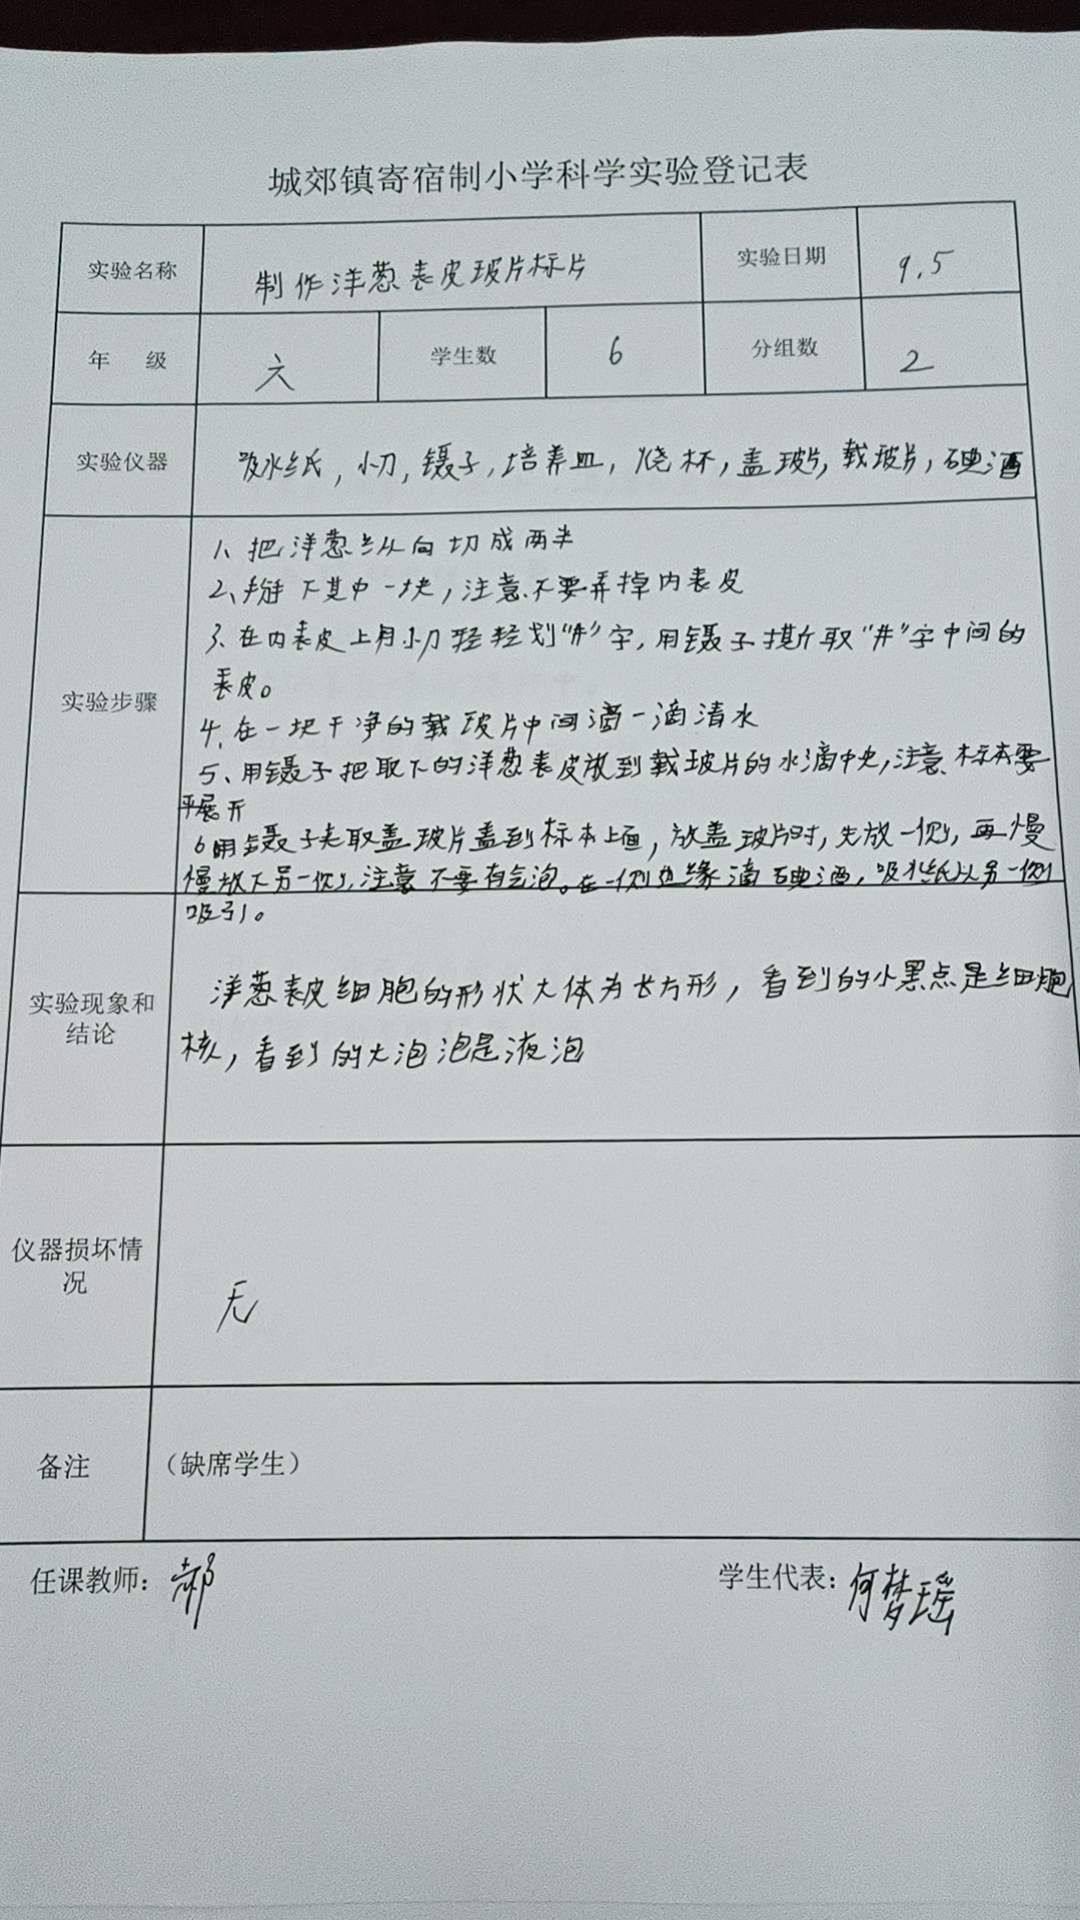 城郊镇寄宿制小学科学实验登记表
实验名称 制作洋葱表皮玻片标片 实验日期 9.5
年 级 六 学生数 6 分组数 2
实验仪器 吸水纸,小刀,镊子,培养皿,烧杯,盖玻片,载玻片,碘酒
实验步骤
1、把洋葱纵向切成两半
2、掰下其中一块,注意不要弄掉内表皮
3、在内表皮上用小刀轻轻划“井”字,用镊子撕取“井”字中间的
表皮。
4、在一块干净的载玻片中间滴一滴清水
5、用镊子把取下的洋葱表皮放到载玻片的水滴中央,注意标本要
平展开
6用镊子夹取盖玻片盖到标本上面,放盖玻片时,先放一侧,再慢
慢放下另一侧,注意不要有气泡。在一侧边缘滴碘酒,吸水纸从另一侧
吸引。
实验现象和结论
洋葱表皮细胞的形状大体为长方形,看到的小黑点是细胞
核,看到的大泡泡是液泡
仪器损坏情况 无
备注 (缺席学生)
任课教师:郝 学生代表:何梦瑶